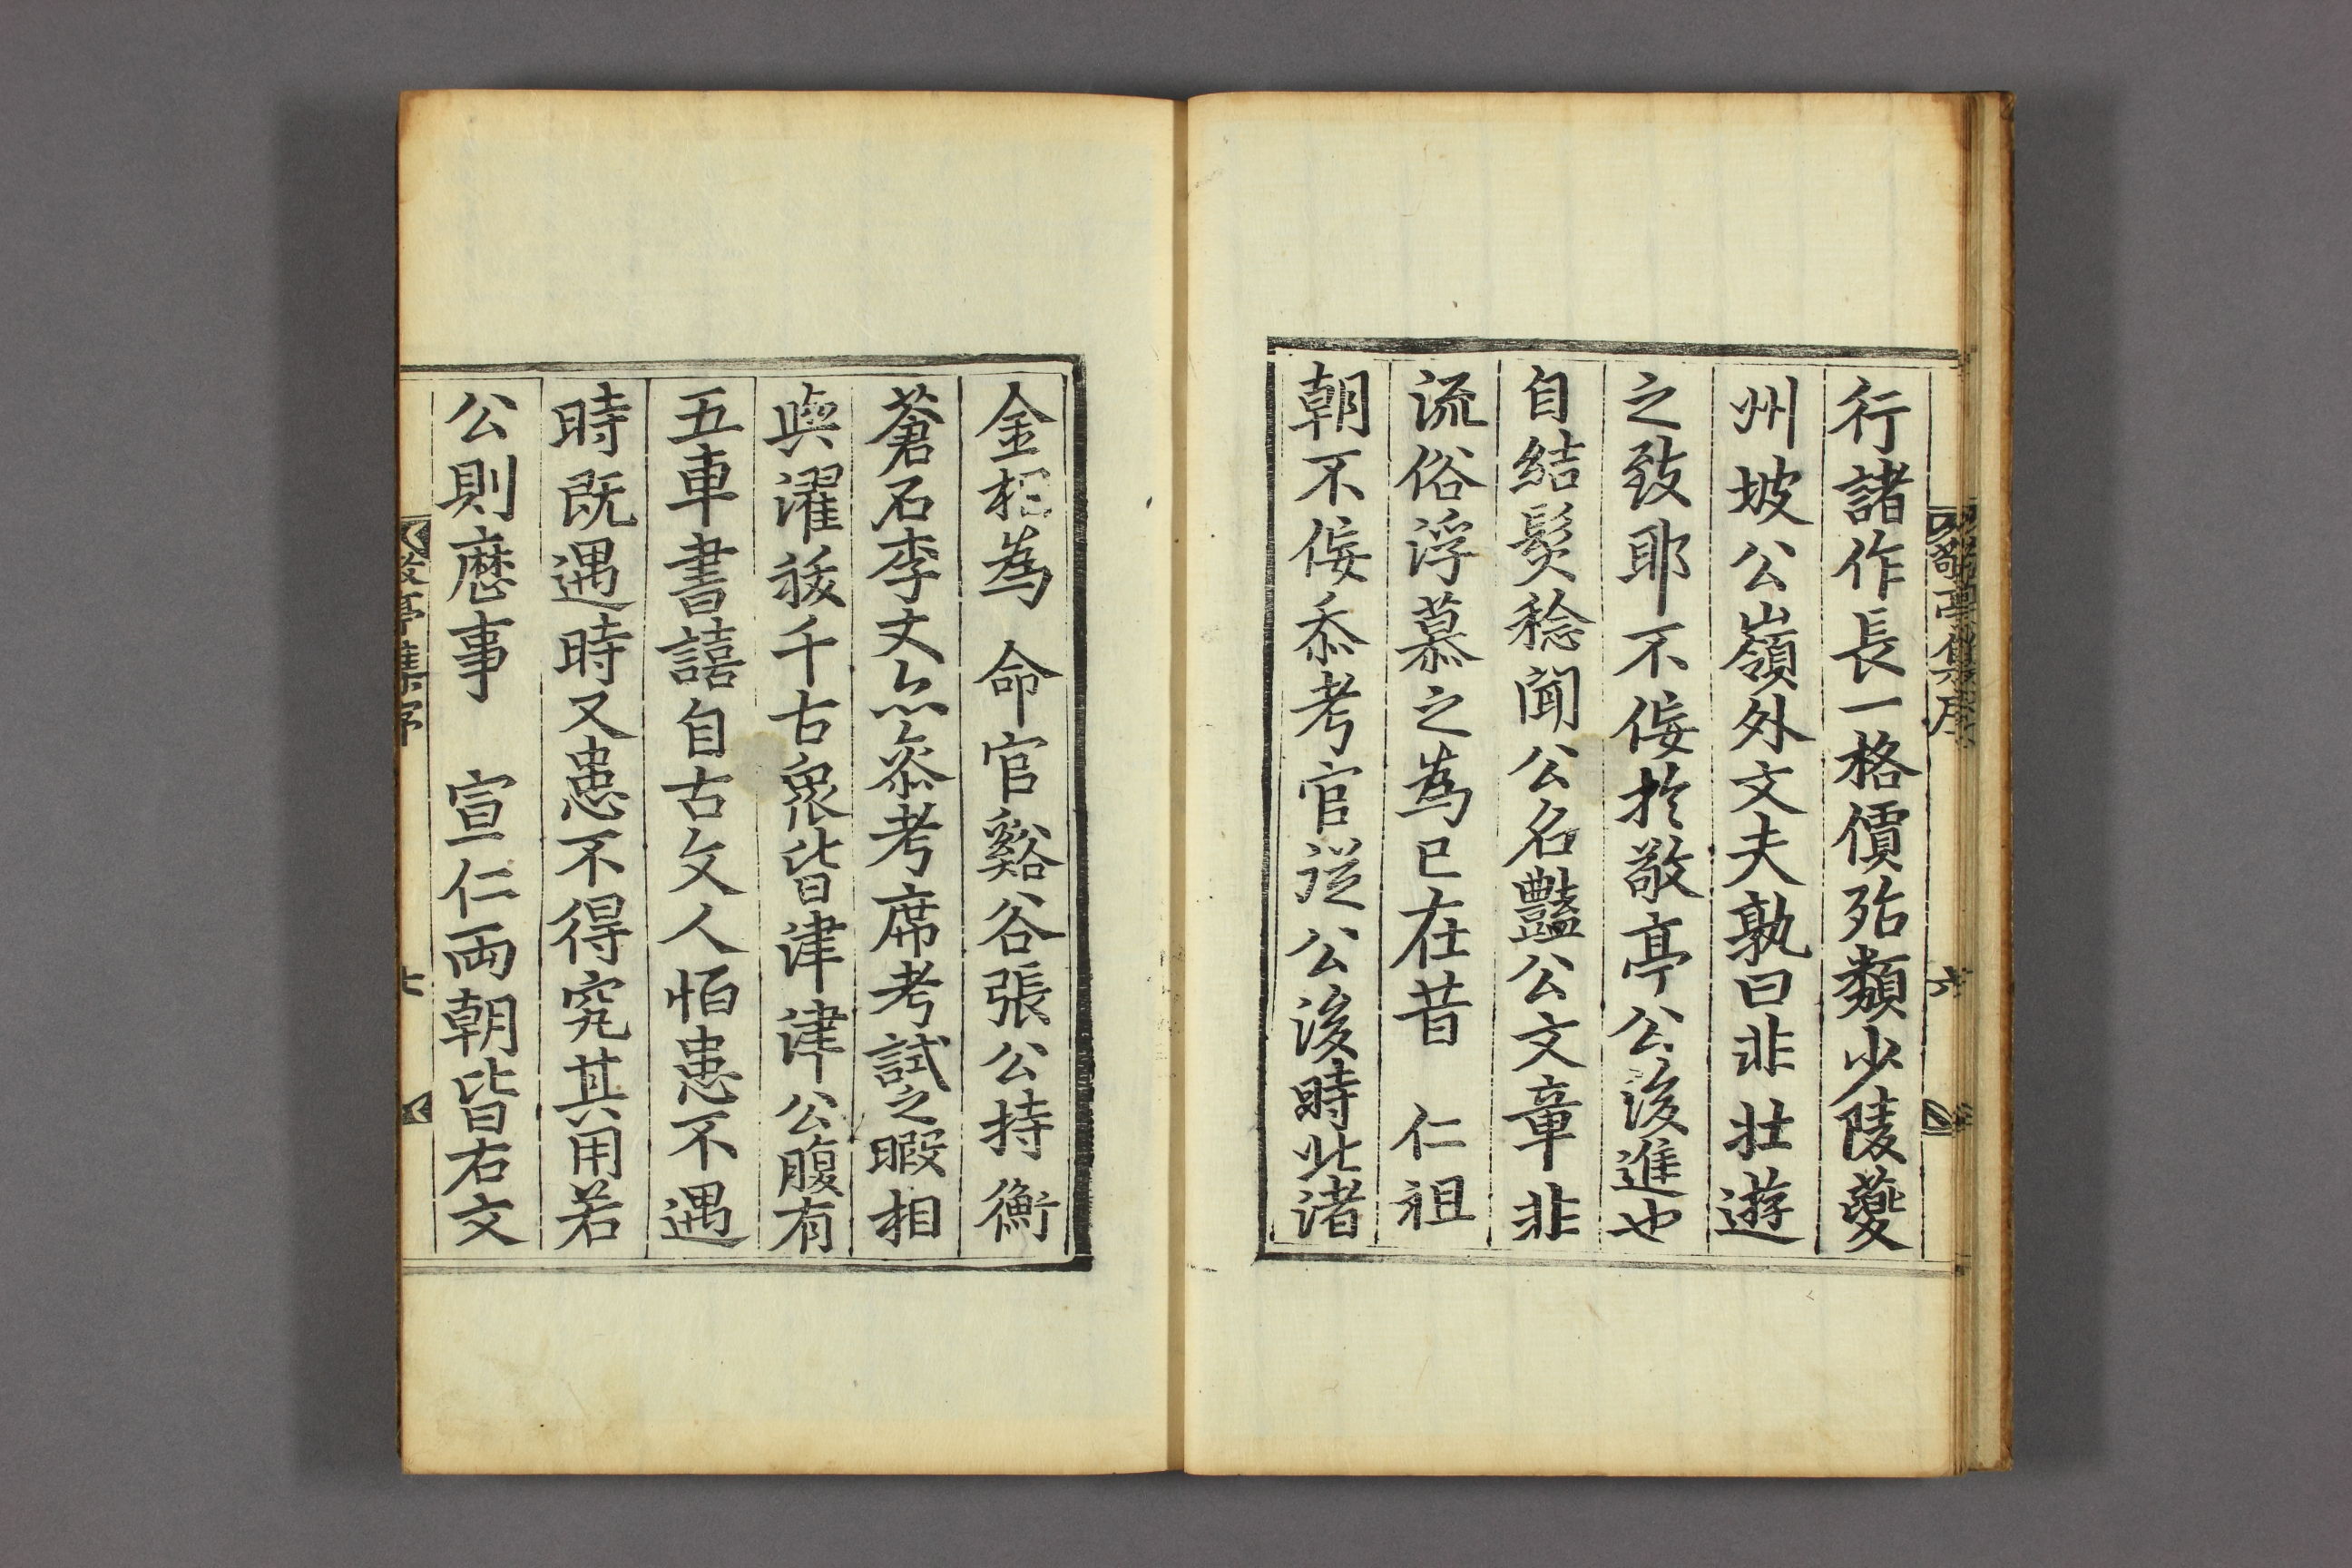 敬亭集序
六
行諸作長一格價殆類少陵夔
州坡公嶺外文夫孰曰非壯遊
之致耶不佞扵敬亭公後進也
自結髪稔聞公名豔公文章非
流俗浮慕之為已在昔 仁祖
朝不佞忝考官從公後時北渚
金相為 命官谿谷張公持衡
蒼石李丈亦忝考席考試之暇相
與濯祓千古衆皆津津公腹有
五車書譆自古文人恒患不遇
時既遇時又患不得究其用若
公則歷事 宣仁両朝皆右文
敬亭集序
七